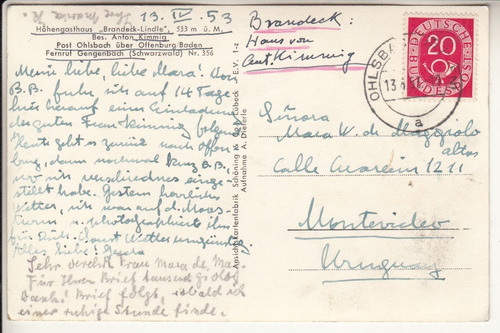 13. IV. 53
Höhengasthaus "Brandeck-Lindle", 533 m ü. M.
Bes. Anton Kimmig
Post Ohlsbach über Offenburg/Baden
Fernruf Gengenbach (Schwarzwald) Nr. 356
Meine liebe, liebe Mara! Von
B.B. fuhr ich auf 14 Tage
hierherauf einer Einladung
der guten Frau Kimmig folgend.
Heute geht es zurück nach Offen-
burg, dann nochmal kurz B.B.,
wo ich verschiedenes einge-
stellt habe. Gestern herrliches
Wetter, ich war auf d. Moos-
turm u. photographierte ihn
für Dich. Sonst Wetter
Alles Liebe!
Sehr verehrte Frau Mara de
Für Ihren Brief tausend
Dank! Brief folgt, sobald ich
einer ruhige Stunde finde.
Ansichtskartenfabrik Schöning & Co. Lübeck
Aufnahme A. Dieterle
Brandeck:
Haus von
Ant. Kimmig
DEUTSCHE BUNDESPOST
20
OHLSBA
a
Señora
Mara W. de
altos
Calle 1211
Montevideo
Uruguay